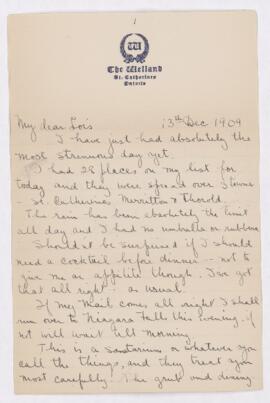 1
W
The Welland
St. Catharines
Ontario
My dear Lois 13th Dec 1909
I have just had absolutely the
most strenuous day yet.
I had 28 places on my list for
today and they were spread over 3 towns
- St Catherines Merritton & Thorold.
The rain has been absolutely the limit
all day and I had no umbrella or rubbers
Should not be surprised if I should
need a cocktail before dinner - not to
give me an appetite though. I've got
that all right as usual.
If my mail comes all right I shall
run over to Niagara Falls this evening. if
not will wait till morning
This is a sanitarium or whatever you
call the things, and they treat you
most carefully. The grub and dining